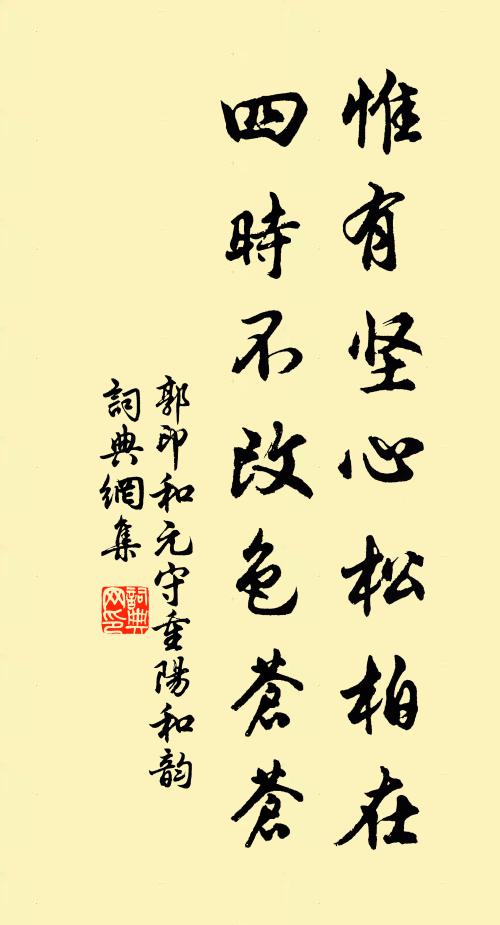 惟有坚心松柏在
四時不改色蒼蒼
郭印和元守重陽和韵
詞典網集
詞典网印